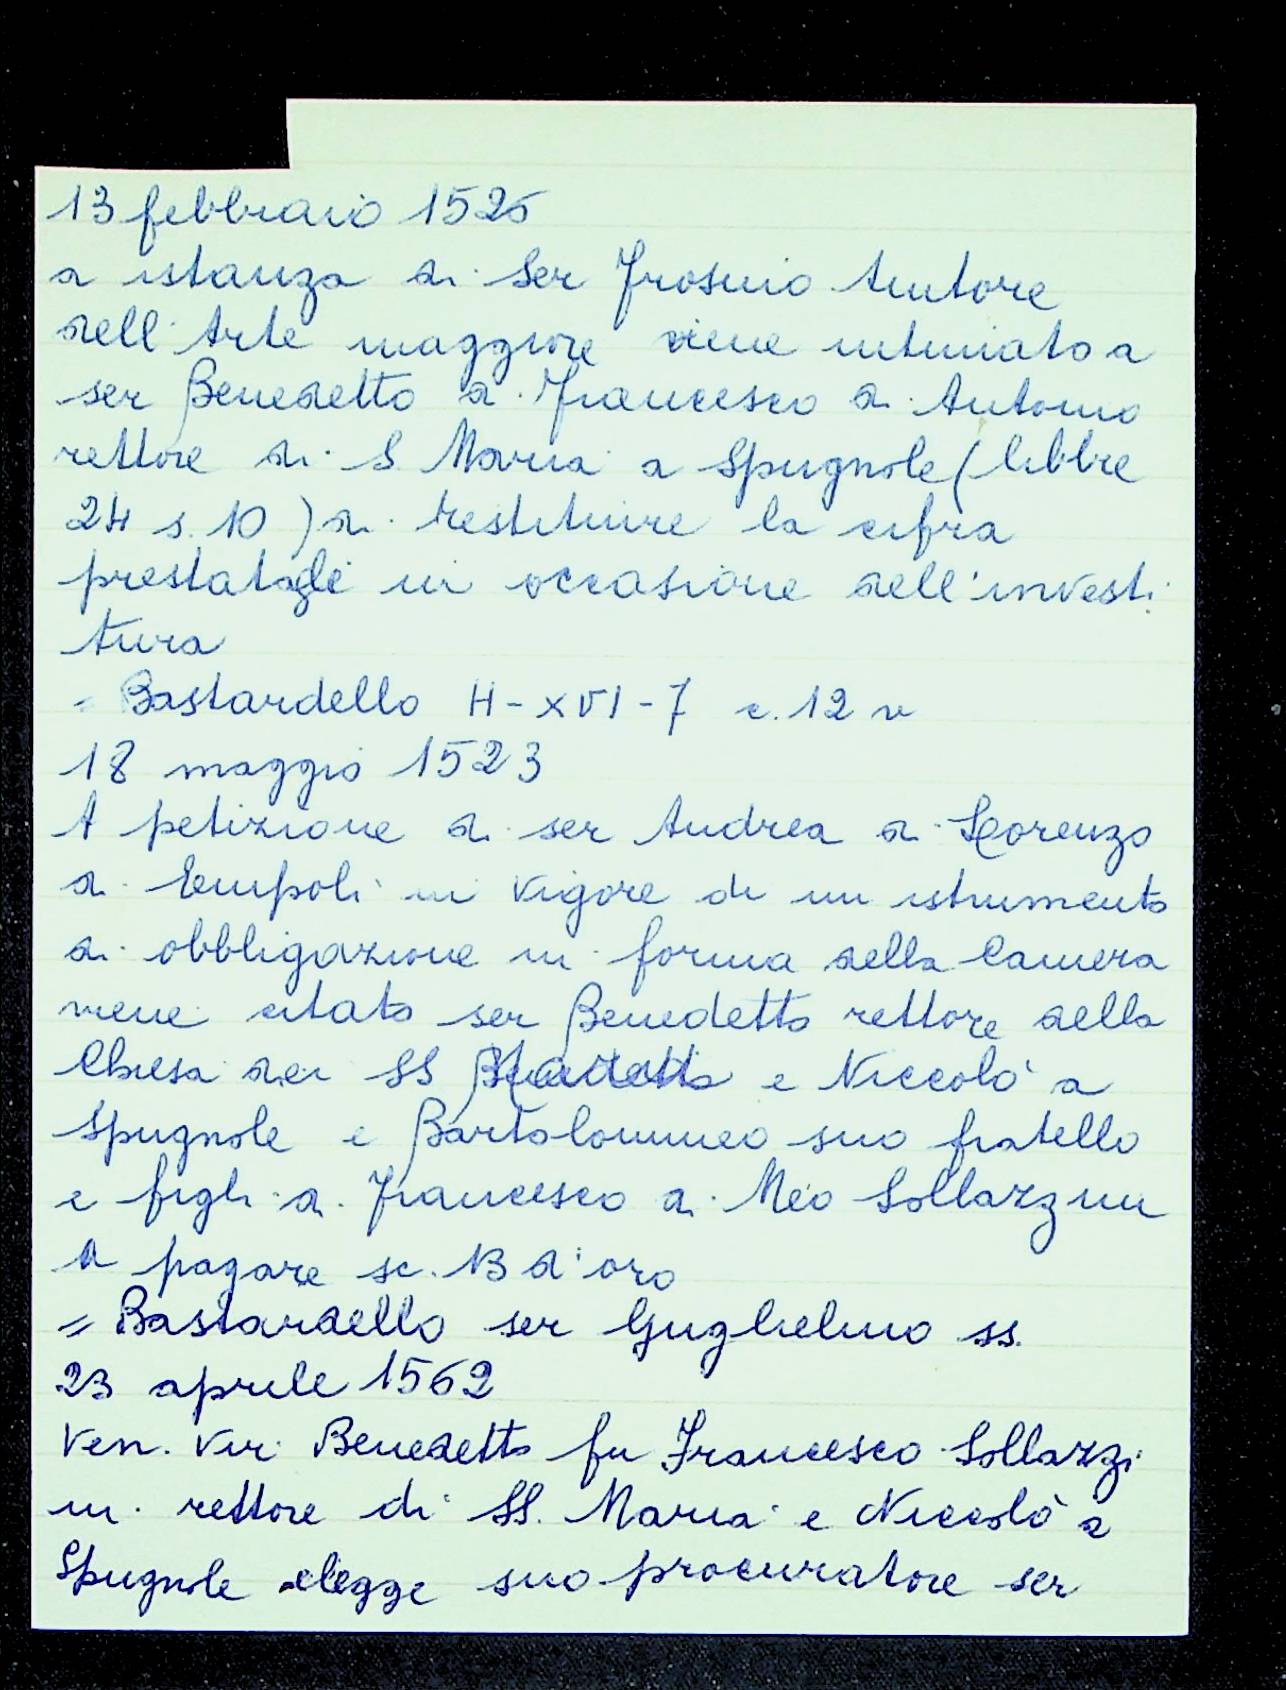 13 febbraio 1525
a istanza di Ser Frosino tintore
dell'Arte maggiore viene intimato a
ser Benedetto di Francesco di Antonio
rettore di S Maria a Spugnole (libbre
24 s. 10) di restituire la cifra
prestatagli in occasione dell'investi
tura
= Bastardello H-XVI-7 c. 12 v
18 maggio 1523
A petizione di ser Andrea di Lorenzo
di Empoli in vigore di un istrumento
di obbligazione in forma della Camera
viene citato ser Benedetto rettore della
Chiesa dei SS e Niccolò a
Spugnole e Bartolommeo suo fratello
e figli di Francesco di Meo Sollazzini
a pagare sc. 13 d'oro
= Bastardello ser Guglielmo ss.
23 aprile 1562
Ven. Vir Benedetto fu Francesco Sollazzi
ni rettore di SS. Maria e Niccolò a
Spugnole elegge suo procuratore ser